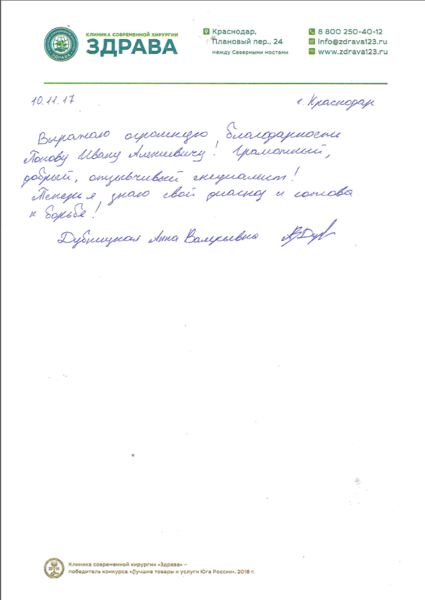 КЛИНИКА СОВРЕМЕННОЙ ХИРУРГИИ
ЗДРАВА
Краснодар,
Плановый пер., 24
между Северными мостами
8 800 250-40-12
info@zdrava123.ru
www.zdrava123.ru
10.11.17 г. Краснодар
Выражаю огромную благодарность
Попову Ивану! Грамотный,
добрый, отзывчивый специалист!
Теперь я знаю свой диагноз и готова
к борьбе!
Анна Валерьевна
Клиника современной хирургии «Здрава» –
победитель конкурса «Лучшие товары и услуги Юга России», 2016 г.